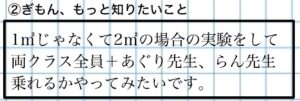 ②ぎもん、もっと知りたいこと
1㎡じゃなくて2㎡の場合の実験をして
両クラス全員＋あぐり先生、らん先生
乗れるかやってみたいです。